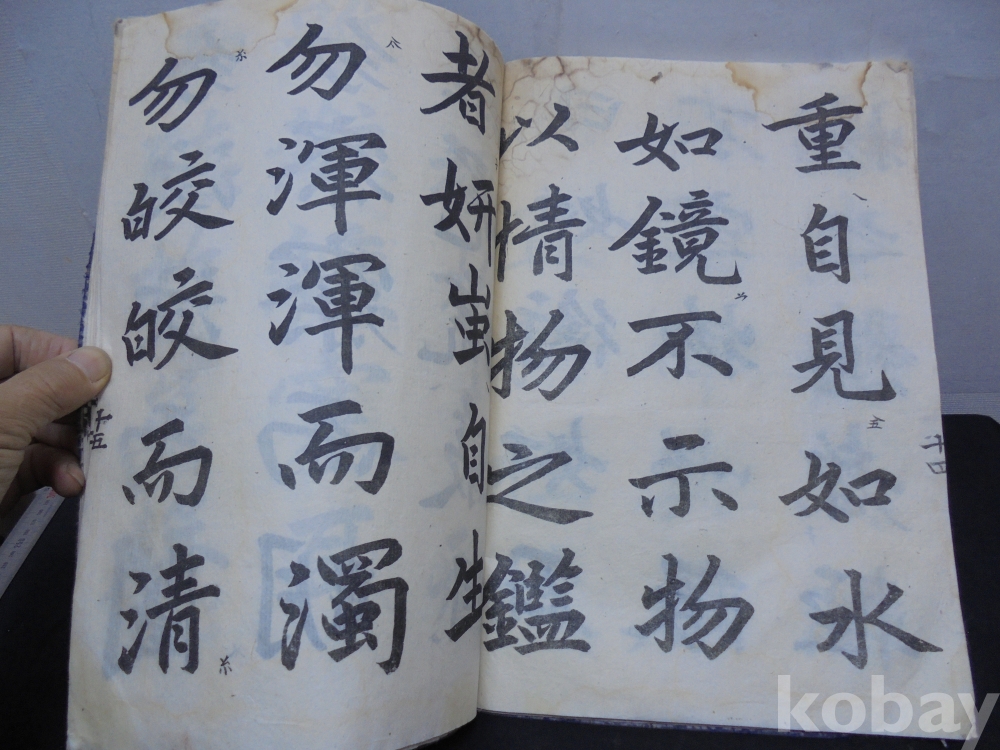 重自見如水
如鏡不示物
以情物之鑑
十四
者妍蚩自生
勿渾渾而濁
勿皎皎而清
十五
kobay